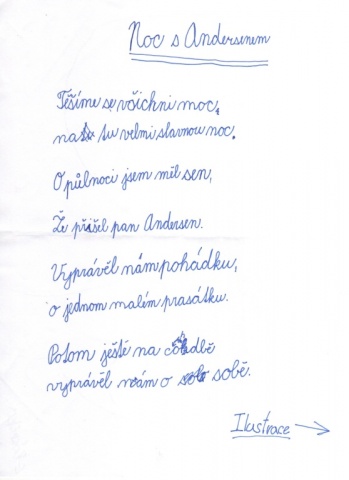 Noc s Andersenem
Těšíme se všichni moc,
na tu velmi slavnou noc.
O půlnoci jsem měl sen,
Že přišel pan Andersen.
Vyprávěl nám pohádku,
o jednom malém prasátku.
Potom ještě na
vyprávěl nám o sobě.
Ilustrace